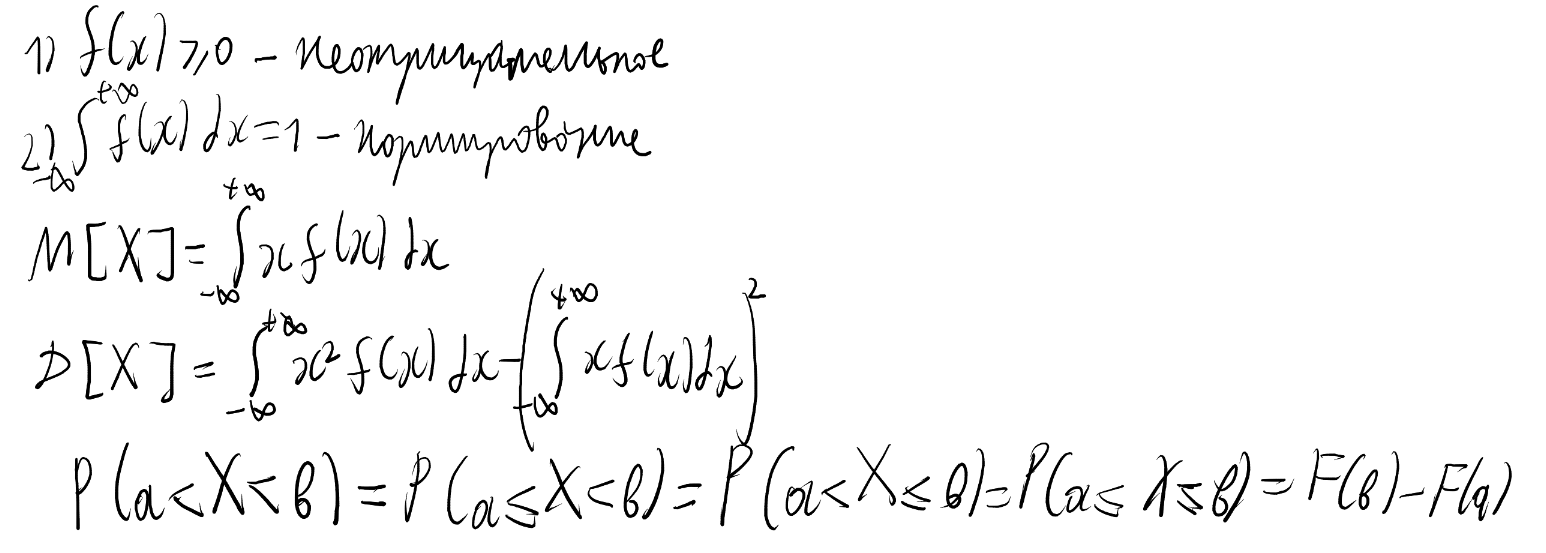 1) f(x) ⩾ 0 – неотрицательное
2) ∫_{-∞}^{+∞} f(x) dx = 1 – нормировочние
M[X] = ∫_{-∞}^{+∞} x f(x) dx
D[X] = ∫_{-∞}^{+∞} x² f(x) dx – (∫_{-∞}^{+∞} x f(x) dx)²
P(a < X < b) = P(a ≤ X < b) = P(a < X ≤ b) = P(a ≤ X ≤ b) = F(b) – F(a)